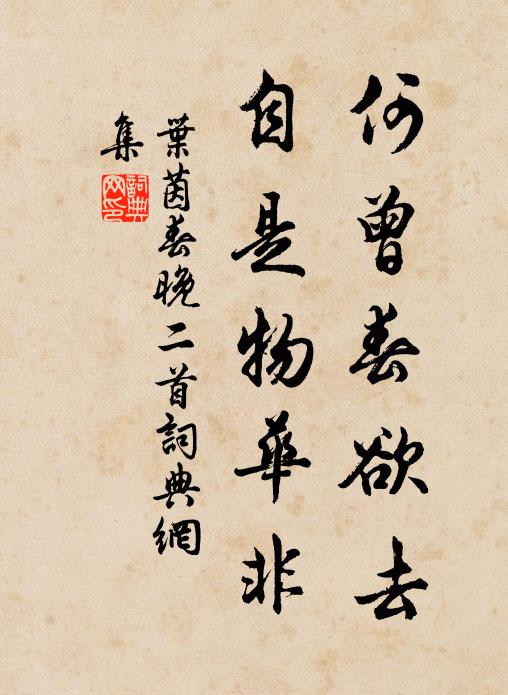 何曾春欲去
自是物華非
葉茵春晚二首詞典網
集
詞典
网印